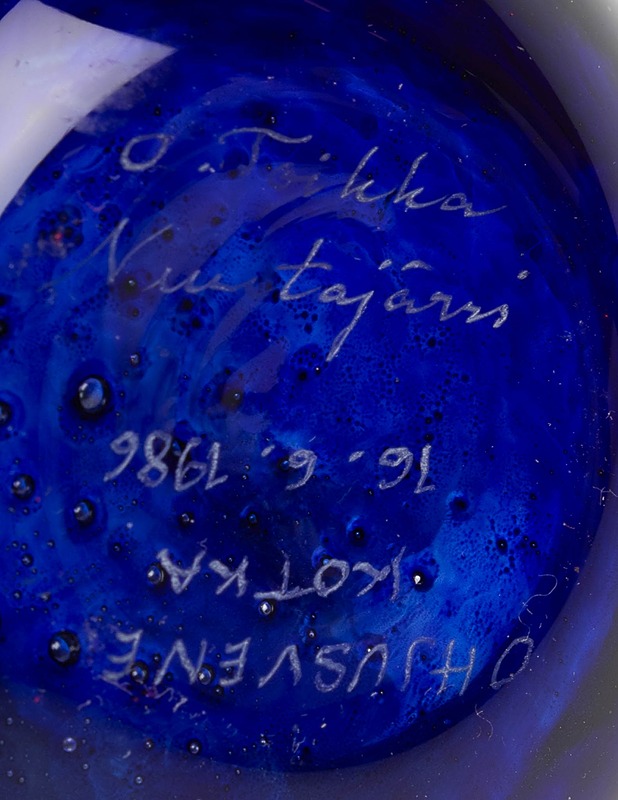 O. Toikka
Nuutajärvi
OHJUSVENE
KOTKA
16. 6. 1986